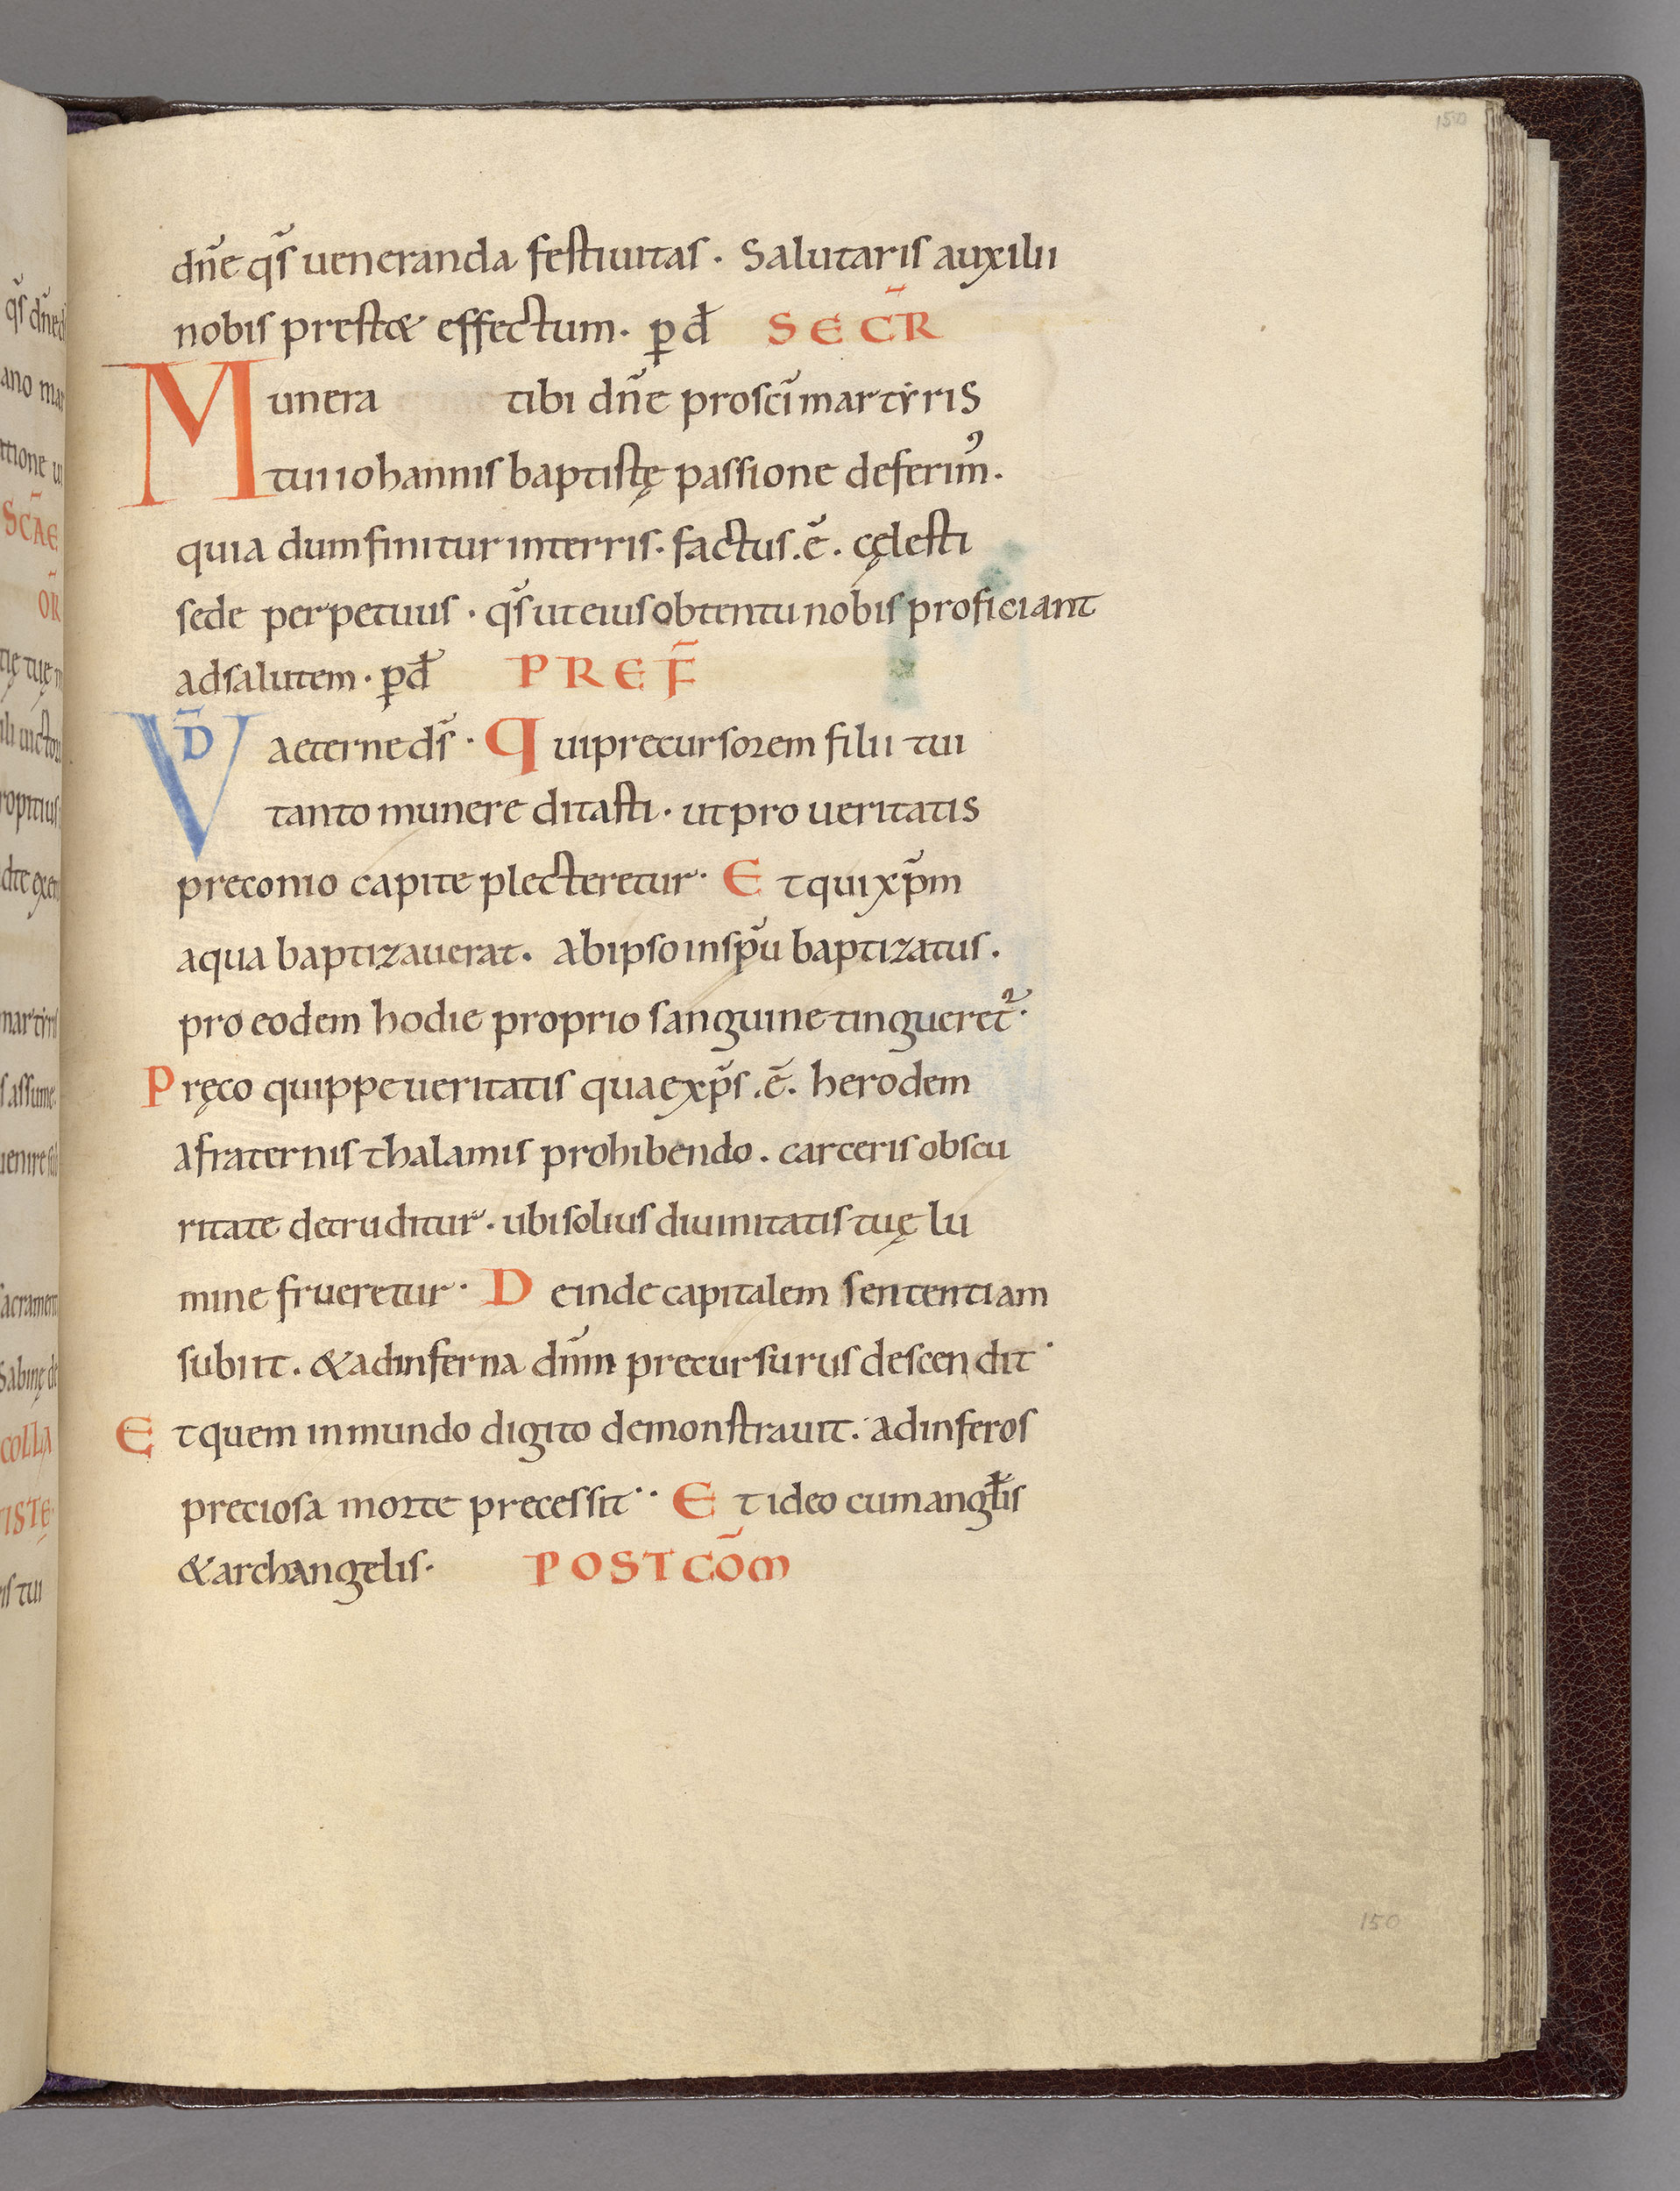 150
dn̄e qs̄ ueneranda festiuitas · Salutaris auxilii
nobis prestæ effectum · p̱ d̄ SECR̄
Munera tibi dn̄e pro sc̄i martẏris
tui iohannis baptistę passione deferim᾿.
quia dum finitur in terris · factus .ē. cęlesti
sede perpetuus · qs̄ ut eius obtentu nobis proficiant
ad salutem · p̱ d̄ PREF̄
VD̄ aeterne ds̄ · Qui precursorem filii tui
tanto munere ditasti · ut pro ueritatis
preconio capite plecteretur · Et qui xp̄m
aqua baptizauerat. ab ipso in sp̄u baptizatus.
pro eodem hodie proprio sanguine tingueret᷑·
Pręco quippe ueritatis quae xp̄s .ē. herodem
a fraternis thalamis prohibendo. carceris obscu
ritate detruditur · ubi solius diuinitatis tuę lu
mine frueretur · Deinde capitalem sententiam
subiit. & ad inferna dn̄m precursurus descendit ·
Et quem in mundo digito demonstrauit. ad inferos
preciosa morte precessit·· Et ideo cum angł̄is
& archangelis· POST CŌM
150
qs̄ dn̄e
ano mar
SC̄AE
OR̄
martẏris
assume
COLLA
is tui